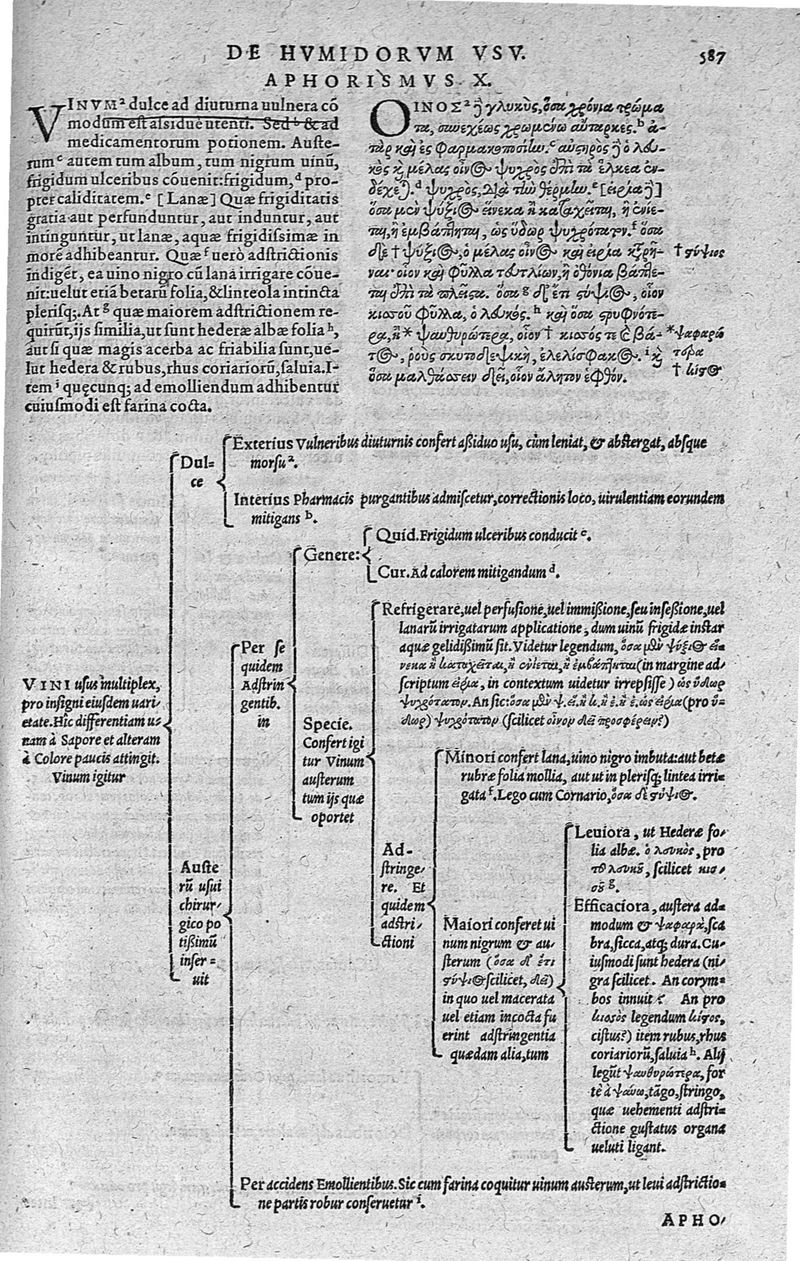 DE HVMIDORVM VSV. 587
APHORISMVS X.
VINVMª dulce ad diuturna uulnera cō
modum est assiduè utenti. Sedᵇ & ad
medicamentorum potionem. Auste-
rumᶜ autem tum album, tum nigrum uinū,
frigidum ulceribus cōuenit: frigidum,ᵈ pro-
pter caliditatem.ᵉ [Lanæ] Quæ frigiditatis
gratia aut perfunduntur, aut induntur, aut
intinguntur, ut lanæ, aquæ frigidissimæ in
morē adhibeantur. Quæᶠ uerò adstrictionis
indigēt, ea uino nigro cū lana irrigare cōue-
nit: uelut etiā betarū folia, & linteola intincta
plerisq;. Atᵍ quæ maiorem adstrictionem re-
quirūt, ijs similia, ut sunt hederæ albæ foliaʰ,
aut si quæ magis acerba ac friabilia sunt, ue-
lut hedera & rubus, rhus coriariorū, saluia. I-
temⁱ quęcunq; ad emolliendum adhibentur
cuiusmodi est farina cocta.
ΟΙΝΟΣª ἢ γλυκὺς, ὅσα χρόνια τρώμα
τα, συνεχέως χρωμένῳ αὐταρκες.ᵇ ἀ-
τὰρ καὶ ἐς φαρμακοποσίην.ᶜ αὐςηρὸς ἢ ὁ λδυ-
κὸς κ μέλας οἶνος ψυχρὸς ἐπὶ τὰ ἕλκεα ἐν-
δέχεται.ᵈ ψυχρὸς, διὰ τὴν θέρμην.ᵉ [εἰρία ἢ]
ὅσα μὲν ψύξιος εἵνεκα ἢ καταχεῖται, ἢ ἐνίε-
ται, ἢ ἐμβάπτηται, ὡς ὕδωρ ψυχρότατον.ᶠ ὅσα
δὲ † ψύξιος, ὁ μέλας οἶνος καὶ εἰρία κρῆ-
ναι· οἷον καὶ φύλλα τευτλίων, ἢ ὀθόνια βάπτε-
ται ἐπὶ τὰ πλεῖςα. ὅσαᵍ δὲ ἔτι ςύψιος, οἷον
κισσοῦ φύλλα, ὁ λδυκός.ʰ καὶ ὅσα ςρυφνότε-
ρα, ἢ* ψαυθυρώτερα, οἷον † κισσός τε Ͼ βά-
τος, ροῦς σκυτοδεψικὴ, ἐλελίσφακος.ⁱ κ
ὅσα μαλθάσσειν δεῖ, οἷον ἄλητον ἑφθόν.
† ςύψιος
*ψαφαρώ
τερα
† κίςος
VINI usus multiplex,
pro insigni eiusdem uari-
etate. Hîc differentiam u-
nam à Sapore et alteram
à Colore paucis attingit.
Vinum igitur
Dul-
ce
Exterius Vulneribus diuturnis confert aßiduo usu, cùm leniat, & abstergat, absque
morsuª.
Interius Pharmacis purgantibus admiscetur, correctionis loco, uirulentiam eorundem
mitigans ᵇ.
Auste
rū usui
chirur-
gico po
tißimū
inser-
uit
Per se
quidem
Adstrin
gentib.
in
Genere:
Quid. Frigidum ulceribus conducit ᶜ.
Cur. Ad calorem mitigandum ᵈ.
Specie.
Confert igi
tur Vinum
austerum
tum ijs quæ
oportet
Refrigerare, uel perfusione, uel immißione, seu inseßione, uel
lanarū irrigatarum applicatione, dum uinū frigidæ instar
aquæ gelidißimæ sit. Videtur legendum, ὅσα μὲν ψύξιος εἵ-
νεκα ἢ καταχεῖται, ἢ ἐνίεται, ἢ ἐμβάπτηται (in margine ad-
scriptum εἰρία, in contextum uidetur irrepsisse) ὡς ὕδωρ
ψυχρότατον. An sic: ὅσα μὲν ψ. εἵ. ἢ κ. ἢ ἐ. ἢ ἐ. ὡς εἰρία (pro ὕ-
δωρ) ψυχρότατον (scilicet οἶνον δεῖ προσφέρειν?)
Ad-
stringe-
re. Et
quidem
adstri-
ctioni
Minori confert lana, uino nigro imbuta: aut betæ
rubræ folia mollia, aut ut in plerisq; lintea irri-
gata ᶠ. Lego cum Cornario, ὅσα δὲ ςύψιος.
Maiori conferet ui
num nigrum & au-
sterum (ὅσα δὲ ἔτι
ςύψιος scilicet, δεῖ)
in quo uel macerata
uel etiam incocta fu
erint adstringentia
quædam alia, tum
Leuiora, ut Hederæ fo-
lia albæ. ὁ λδυκὸς, pro
τοῦ λδυκοῦ, scilicet κισ-
σοῦ ᵍ.
Efficaciora, austera ad-
modum & ψαφαρὰ, sca
bra, sicca, atq; dura. Cu-
iusmodi sunt hedera (ni-
gra scilicet. An corym-
bos innuit? An pro
κισσὸς legendum κίςος,
cistus?) item rubus, rhus
coriariorū, saluia ʰ. Alij
legūt ψαυθυρώτερα, for
tè à ψαύω, tāgo, stringo,
quæ uehementi adstri-
ctione gustatus organa
ueluti ligant.
Per accidens Emollientibus. Sic cum farina coquitur uinum austerum, ut leui adstrictio-
ne partis robur conseruetur ⁱ.
APHO-